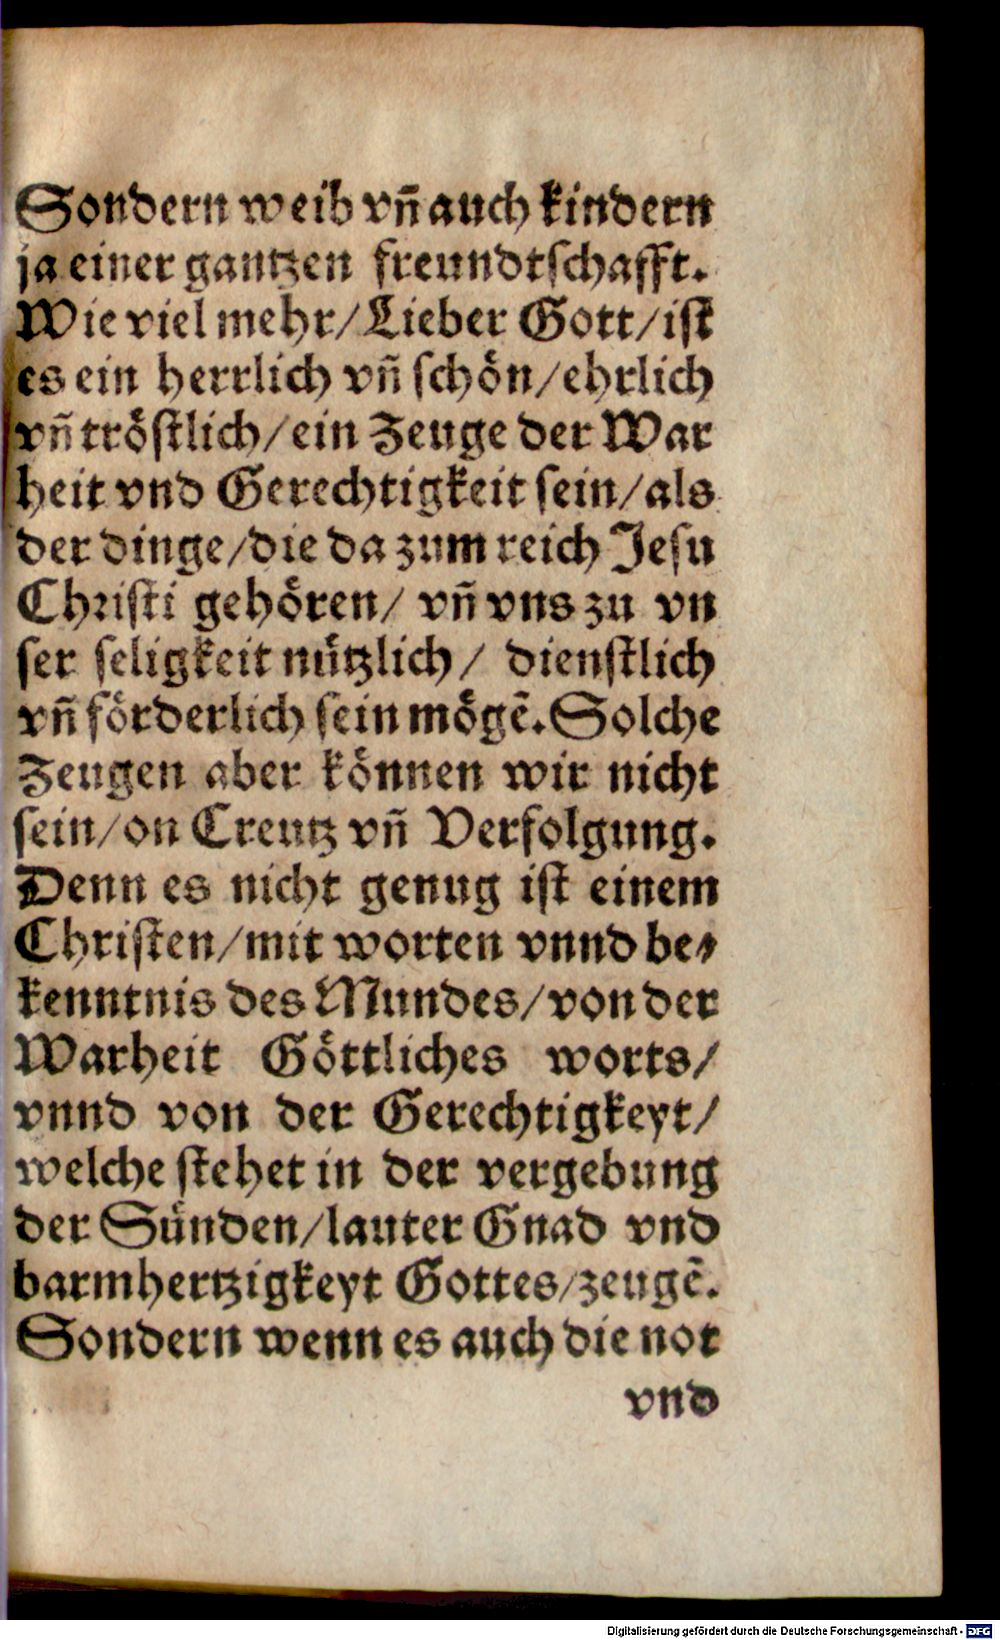 Sondern weib vñ auch kindern
ja einer gantzen freundtſchafft.
Wie viel mehr/Lieber Gott/iſt
es ein herrlich vñ ſchön/ehrlich
vñ tröſtlich/ein Zeuge der War
heit vnd Gerechtigkeit ſein/als
der dinge/die da zum reich Jeſu
Chriſti gehören/ vñ vns zu vn
ſer ſeligkeit nützlich/ dienſtlich
vñ förderlich ſein mögẽ. Solche
Zeugen aber können wir nicht
ſein/on Creutz vñ Verfolgung.
Denn es nicht genug iſt einem
Chriſten/mit worten vnnd be⸗
kenntnis des Mundes/von der
Warheit Göttliches worts/
vnnd von der Gerechtigkeyt/
welche ſtehet in der vergebung
der Sünden/lauter Gnad vnd
barmhertzigkeyt Gottes/zeugẽ.
Sondern wenn es auch die not
vnd
Digitalisierung gefördert durch die Deutsche Forschungsgemeinschaft - DFG